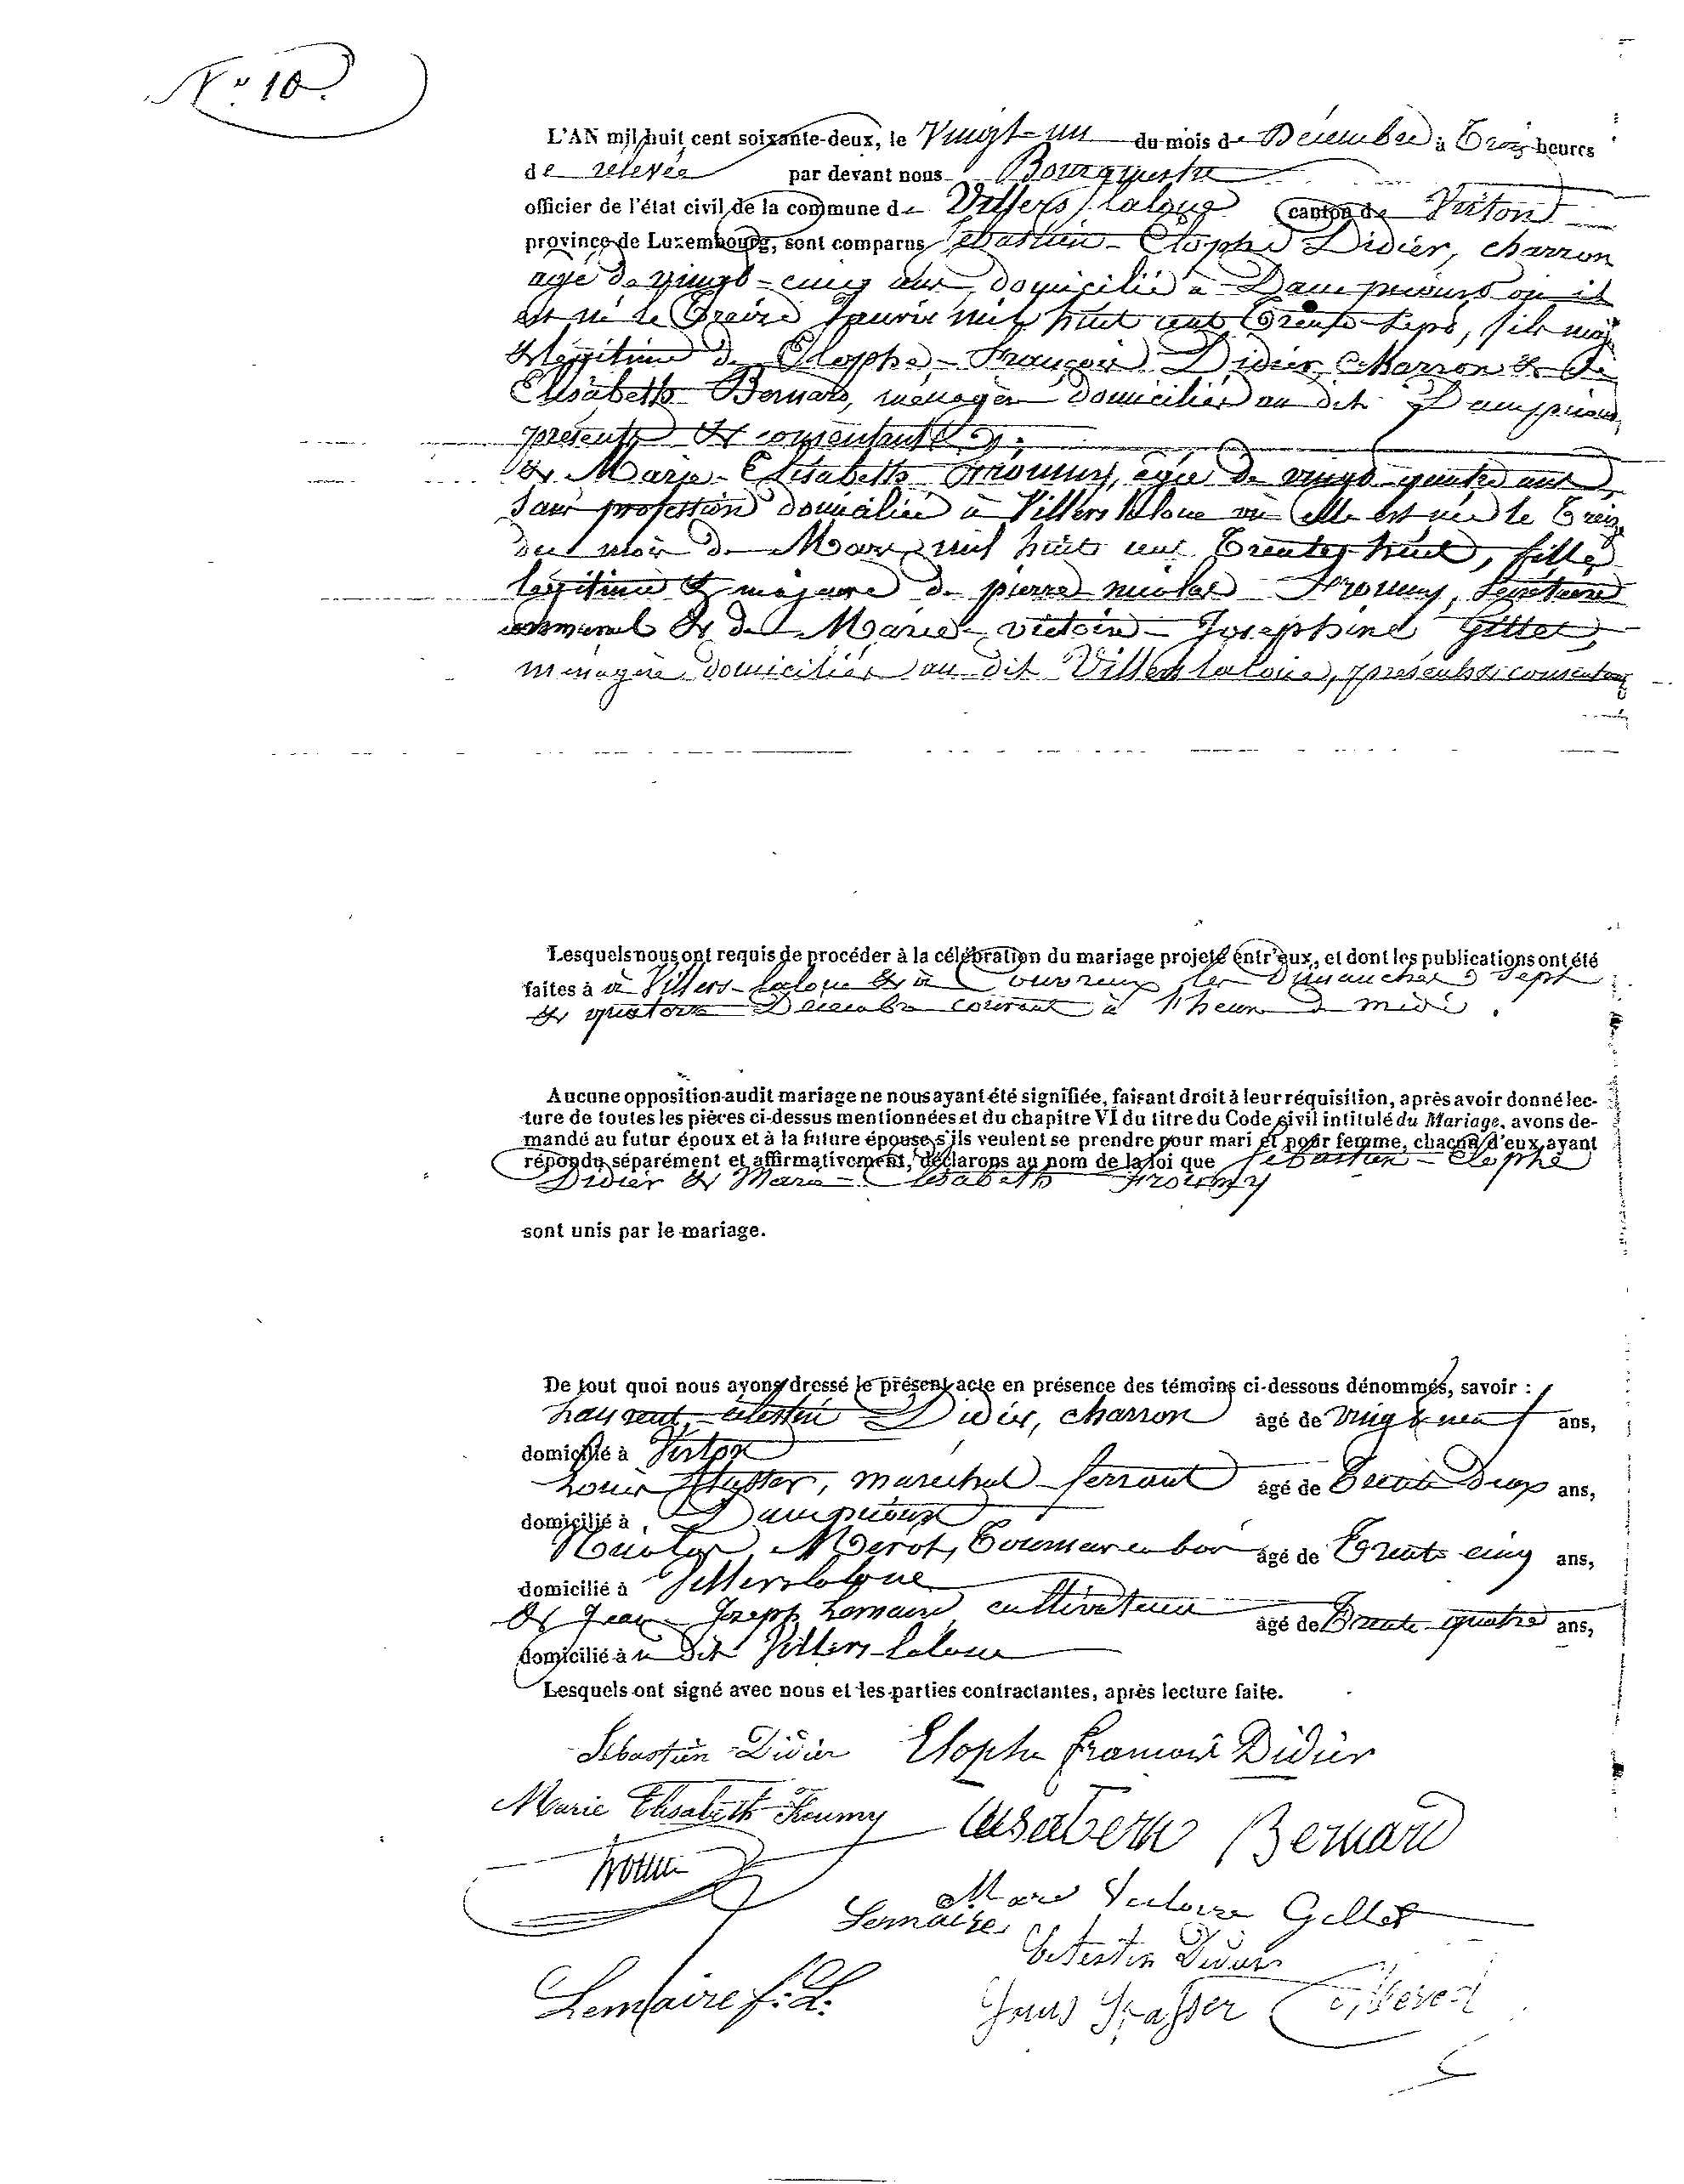 N° 10.
L'AN mil huit cent soixante-deux, le Vingt-un du mois de Décembre à Trois heures
de relevée par devant nous Bourgmestre
officier de l'état civil de la commune de Villers laloue canton de Virton
province de Luxembourg, sont comparus Sébastien-Elophe Didier, charron
agé de vingt-cinq ans domicilié à Dampicourt où il
est né le Treize Janvier mil huit cent Trente-sept, fils maj
& légitime de Elophe-François Didier charron & de
Elisabeth Bernard, ménagère domiciliés au dit Dampicourt
présents & consentants;
& Marie-Elisabeth Froumy, agée de vingt-quatre ans,
sans profession domiciliée à Villers laloue où elle est née le Treize
du mois de Mars mil huit cent Trente-huit, fille
légitime & majeure de pierre nicolas Froumy, Secrétaire
communal & de Marie-victoire-Joséphine Gillet,
ménagère domiciliés au dit Villers laloue, présents & consentans
Lesquels nous ont requis de procéder à la célébration du mariage projeté entr'eux, et dont les publications ont été
faites à à Villers-laloue & à Couvreux les Dimanches sept
& quatorze Décembre courant à l'heure de midi.
Aucune opposition audit mariage ne nous ayant été signifiée, faisant droit à leur réquisition, après avoir donné lec-
ture de toutes les pièces ci-dessus mentionnées et du chapitre VI du titre du Code civil intitulé du Mariage, avons de-
mandé au futur époux et à la future épouse s'ils veulent se prendre pour mari et pour femme, chacun d'eux ayant
répondu séparément et affirmativement, déclarons au nom de la loi que Sébastien-Elophe
Didier & Marie-Elisabeth Froumy
sont unis par le mariage.
De tout quoi nous avons dressé le présent acte en présence des témoins ci-dessous dénommés, savoir :
Laurent celestin Didier, charron âgé de vingt neuf ans,
domicilié à Virton
Louis maréchal ferrant âgé de Trente Deux ans,
domicilié à Dampicourt
Nicolas Merot, Tourneur en bois âgé de Trente cinq ans,
domicilié à Villers laloue
& Jean Joseph Lemaire cultivateur âgé de Trente-quatre ans,
domicilié à u dit Villers-laloue
Lesquels ont signé avec nous et les parties contractantes, après lecture faite.
Sébastien Didier Elophe François Didier
Marie Elisabeth Froumy Elisabeth Bernard
Marie Victoire Gillet
Lemaire
Celestin Didier
Lemaire f. L.